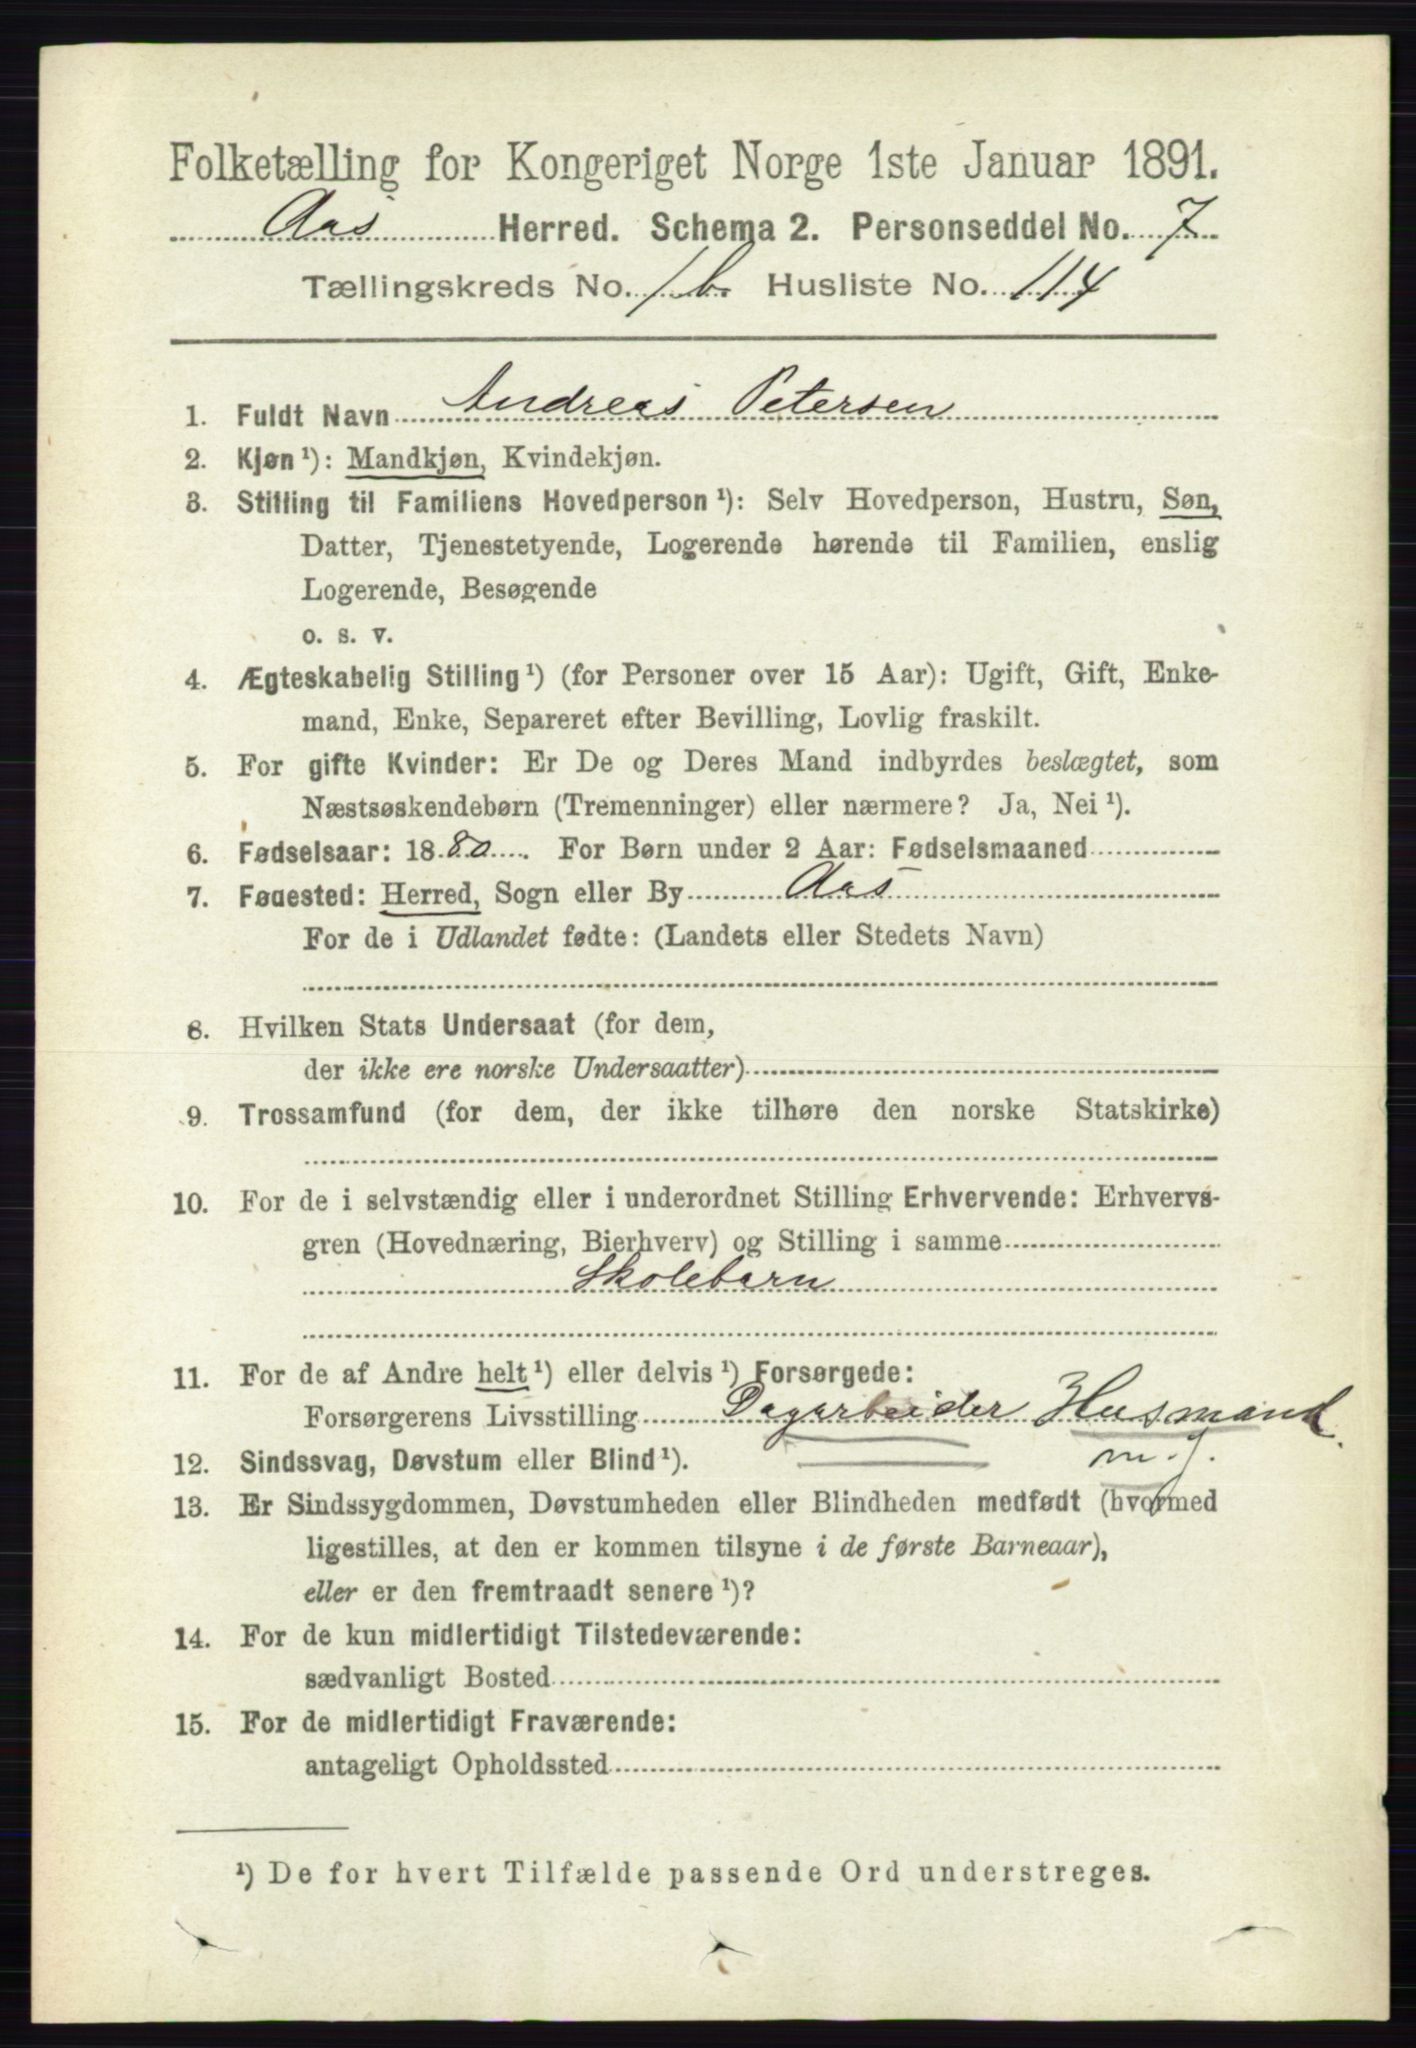 Folketælling for Kongeriget Norge 1ste Januar 1891.
Aas Herred. Schema 2. Personseddel No. 7
Tællingskreds No. 1b. Husliste No. 114
1. Fuldt Navn Andreas Petersen
2. Kjøn ¹): Mandkjøn, Kvindekjøn.
3. Stilling til Familiens Hovedperson ¹): Selv Hovedperson, Hustru, Søn,
Datter, Tjenestetyende, Logerende hørende til Familien, enslig
Logerende, Besøgende
o. s. v.
4. Ægteskabelig Stilling ¹) (for Personer over 15 Aar): Ugift, Gift, Enke-
mand, Enke, Separeret efter Bevilling, Lovlig fraskilt.
5. For gifte Kvinder: Er De og Deres Mand indbyrdes beslægtet, som
Næstsøskendebørn (Tremenninger) eller nærmere? Ja, Nei ¹).
6. Fødselsaar: 1880. For Børn under 2 Aar: Fødselsmaaned
7. Fødested: Herred, Sogn eller By Aas
For de i Udlandet fødte: (Landets eller Stedets Navn)
8. Hvilken Stats Undersaat (for dem,
der ikke ere norske Undersaatter)
9. Trossamfund (for dem, der ikke tilhøre den norske Statskirke)
10. For de i selvstændig eller i underordnet Stilling Erhvervende: Erhvervs-
gren (Hovednæring, Bierhverv) og Stilling i samme
Skolebarn
11. For de af Andre helt ¹) eller delvis ¹) Forsørgede:
Forsørgerens Livsstilling Dagarbeider Husmand
m. j.
12. Sindssvag, Døvstum eller Blind ¹).
13. Er Sindssygdommen, Døvstumheden eller Blindheden medfødt (hvormed
ligestilles, at den er kommen tilsyne i de første Barneaar),
eller er den fremtraadt senere ¹)?
14. For de kun midlertidigt Tilstedeværende:
sædvanligt Bosted
15. For de midlertidigt Fraværende:
antageligt Opholdssted
¹) De for hvert Tilfælde passende Ord understreges.